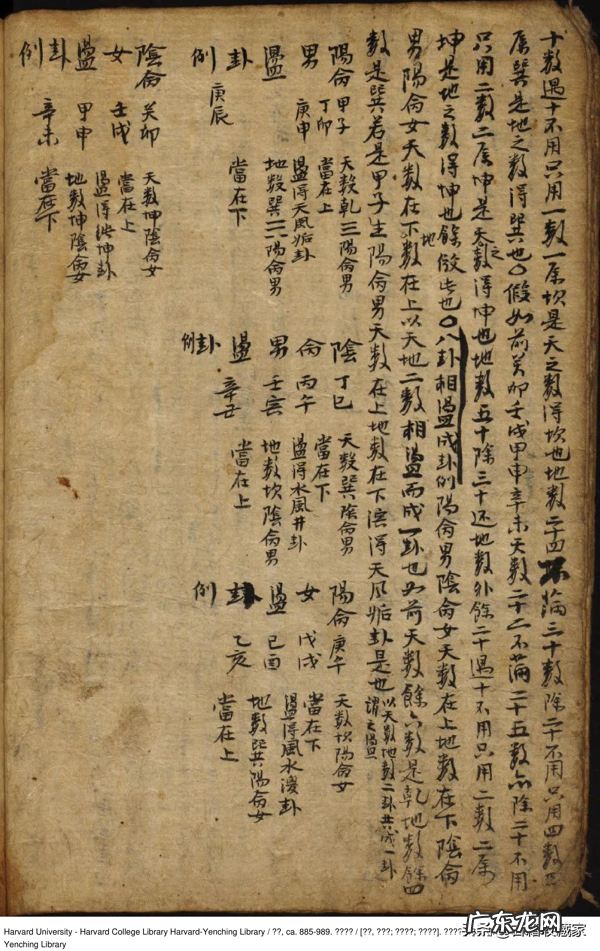 十數遇十不用只用一數一屬坎是天之數得坎也地數二十四不滿三十數除二十不用只用四數四
屬巽是地之數得巽也〇假如前癸卯壬戌甲申辛未天數二十二不滿二十五數亦除二十不用
只用二數二屬坤是天之數得坤也地數五十除三十还地數外餘二十遇十不用只用二數二屬
坤是地之數得坤也餘倣此也〇八卦相盪成卦例陽命男陰命女天數在上地數在下陰命
男陽命女天數在下地數在上以天地二數相盪而成一卦也如前天數餘六數是乾地數餘四
數是巽若是甲子生陽命男天數在上地數在下盪得天風姤卦是也以天數地數二卦共成一卦謂之盪
陽命男盪卦例
甲子 丁卯 庚申 庚辰
天數乾三陽命男
當在上
盪得天風姤卦
地數巽二陽命男
當在下
陰命男盪卦例
丁巳 丙午 壬寅 辛丑
天數巽陰命男
當在下
盪得水風井卦
地數坎陰命男
當在上
陽命女盪卦例
庚午 戊戌 己酉 乙亥
天數坎陽命女
當在下
盪得風水渙卦
地數巽陽命女
當在上
陰命女盪卦例
癸卯 壬戌 甲申 辛未
天數坤陰命女
當在上
盪得純坤卦
地數坤陰命女
當在下
Harvard University - Harvard College Library Harvard-Yenching Library / ??, ca. 885-989. ???? / [??, ???; ????; ????].
Yenching Library
广东龙网